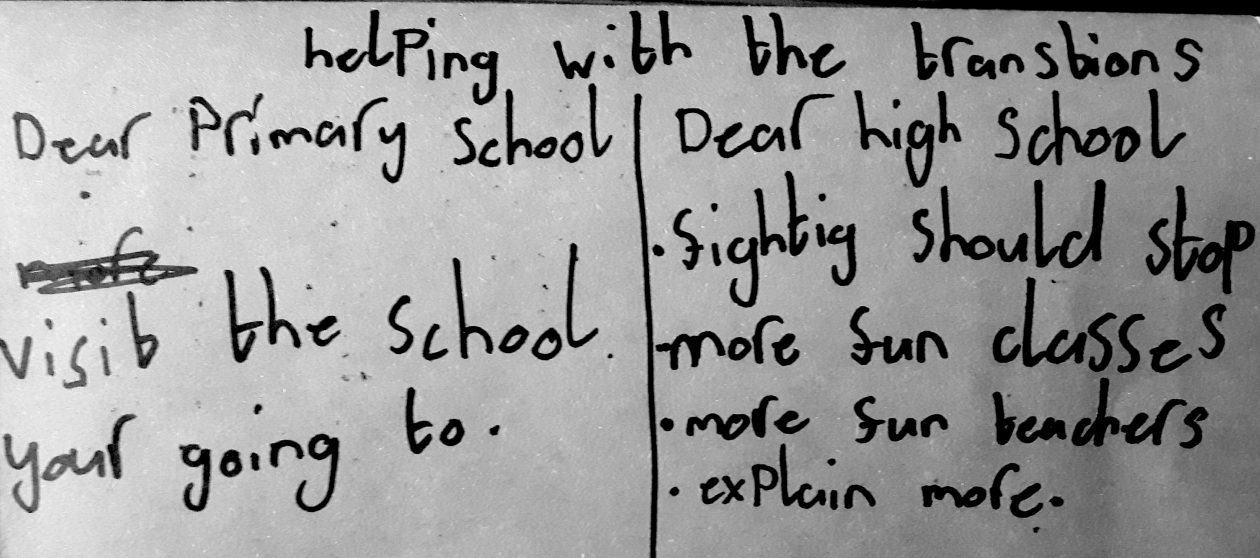 helping with the transtions
Dear Primary School
visit the school.
your going to.
Dear high school
• fightig should stop
• more fun classes
• more fun teachers
• explain more.